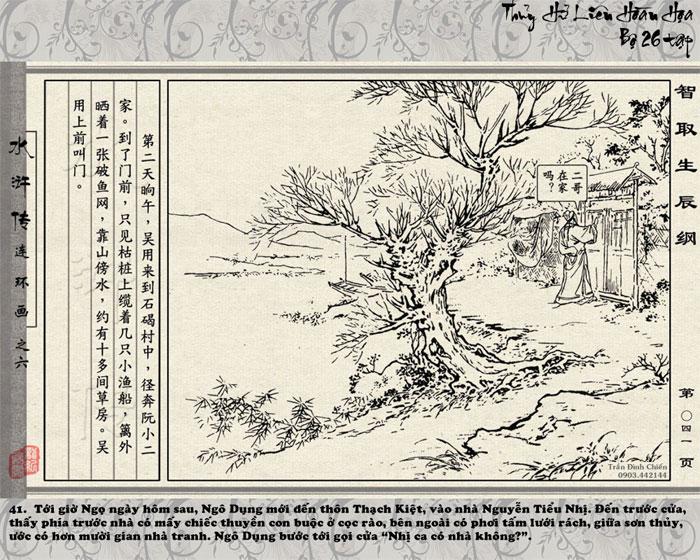 Thủy Hử Liên Hoàn Họa
Bộ 26 tập
智取生辰纲
水浒传连环画之六
第二天晌午，吴用来到石碣村中，径奔阮小二
家。到了门前，只见枯桩上缆着几只小渔船，篱外
晒着一张破鱼网，靠山傍水，约有十多间草房。吴
用上前叫门。
二哥
在家
吗？
第〇四一页
Trần Đình Chiến
0903.442144
41. Tới giờ Ngọ ngày hôm sau, Ngô Dụng mới đến thôn Thạch Kiệt, vào nhà Nguyễn Tiểu Nhị. Đến trước cửa,
thấy phía trước nhà có mấy chiếc thuyền con buộc ở cọc rào, bên ngoài có phơi tấm lưới rách, giữa sơn thủy,
ước có hơn mười gian nhà tranh. Ngô Dụng bước tới gọi cửa “Nhị ca có nhà không?”.